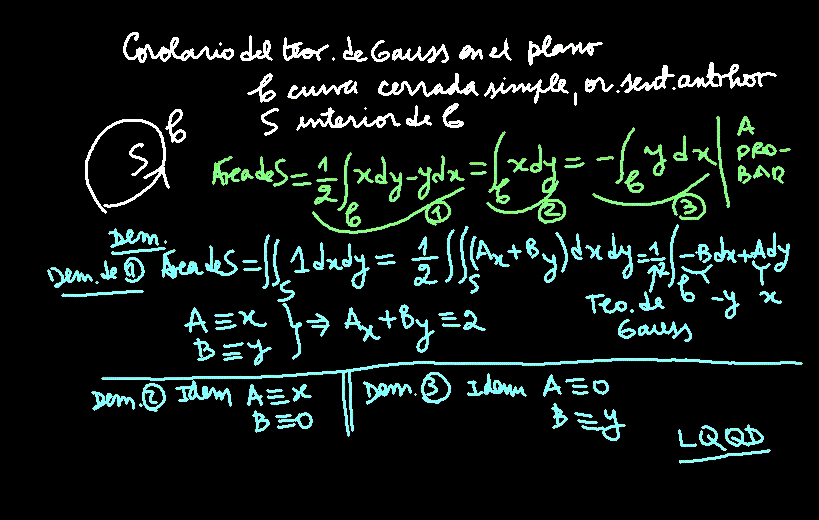 Corolario del teor. de Gauss en el plano
C curva cerrada simple, or. sent. antihor
S interior de C
C
S
Área de S = 1/2 ∫_C xdy - ydx = ∫_C xdy = -∫_C y dx | A PROBAR
① ② ③
Dem.
Dem. de ① Área de S = ∬_S 1 dxdy = 1/2 ∬_S (A_x + B_y) dx dy = 1/2 ∫_C -Bdx + Ady
↑ Teo. de Gauss
-y x
A ≡ x
B ≡ y } ⇒ A_x + B_y ≡ 2
Dem. ② Idem A ≡ x
B ≡ 0
Dem. ③ Idem A ≡ 0
B ≡ y
LQQD